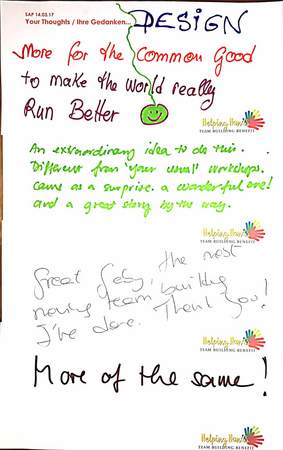 SAP 14.03.17
Your Thoughts / Ihre Gedanken...
DESIGN
More for the Common Good
to make the World really
Run Better
Helping Hands
TEAM BUILDING BENEFIT
An extraordinary idea to do this.
Different from "your usual" workshops.
Came as a surprise. a wonderful one!
and a great story by the way.
Helping Hands
TEAM BUILDING BENEFIT
Great Story, the most
moving team building
I've done. Thank you!
Helping Hands
TEAM BUILDING BENEFIT
More of the same!
Helping Hands
TEAM BUILDING BENEFIT